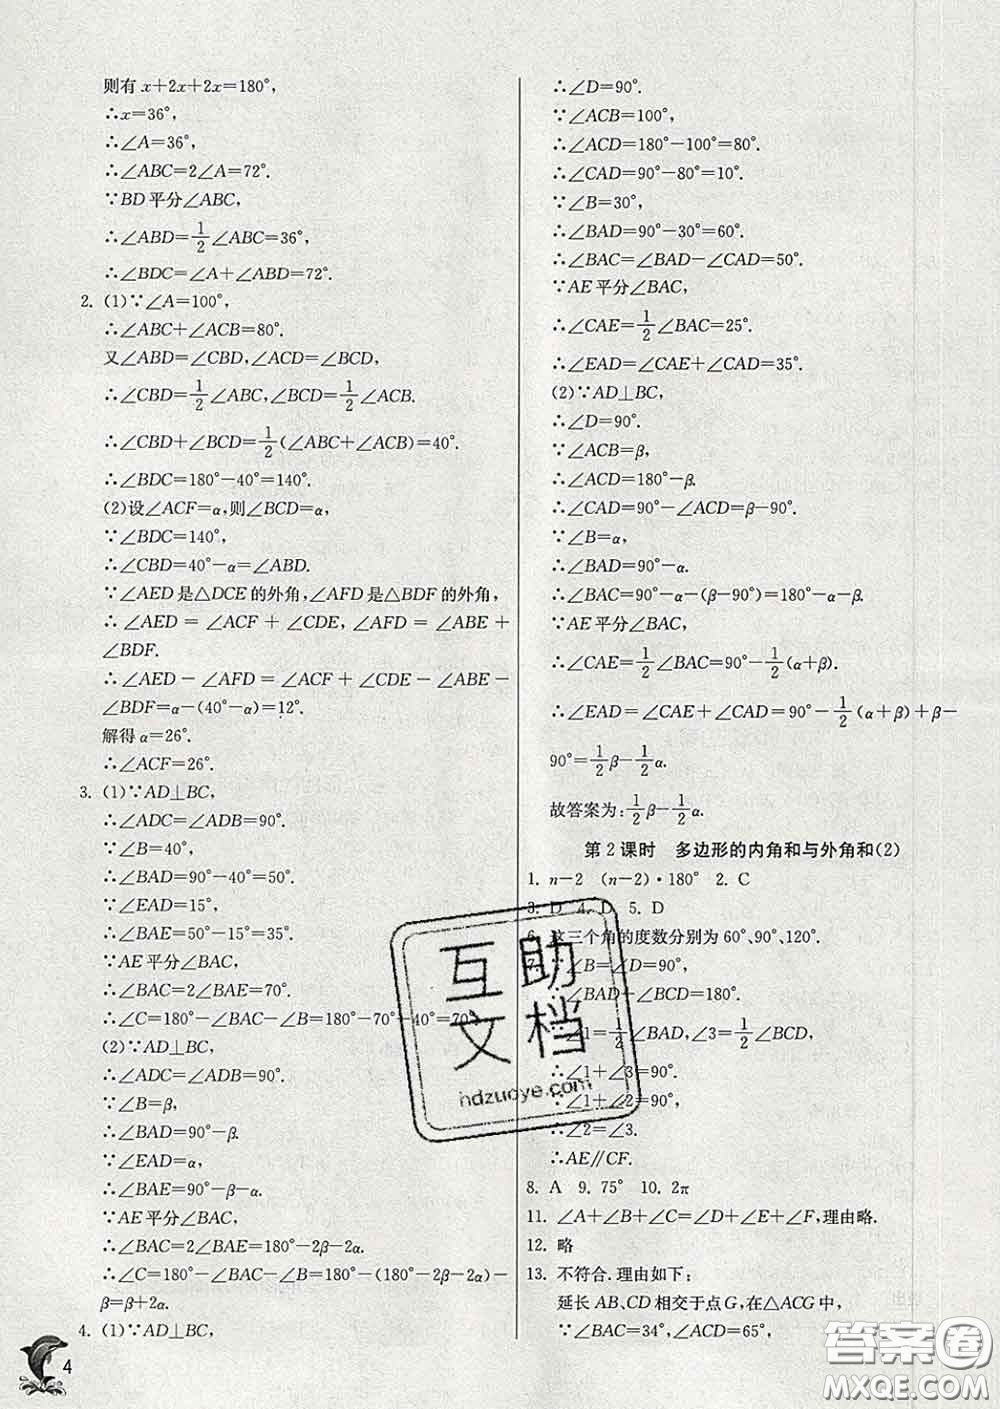 则有 x+2x+2x=180°,
∴x=36°,
∴∠A=36°,
∴∠ABC=2∠A=72°.
∵BD 平分∠ABC,
∴∠ABD=1/2∠ABC=36°,
∴∠BDC=∠A+∠ABD=72°.
2. (1)∵∠A=100°,
∴∠ABC+∠ACB=80°.
又∠ABD=∠CBD,∠ACD=∠BCD,
∴∠CBD=1/2∠ABC,∠BCD=1/2∠ACB.
∴∠CBD+∠BCD=1/2(∠ABC+∠ACB)=40°.
∴∠BDC=180°−40°=140°.
(2)设∠ACF=α,则∠BCD=α,
∵∠BDC=140°,
∴∠CBD=40°−α=∠ABD.
∵∠AED是△DCE的外角,∠AFD是△BDF的外角,
∴∠AED=∠ACF+∠CDE,∠AFD=∠ABE+
∠BDF.
∴∠AED−∠AFD=∠ACF+∠CDE−∠ABE−
∠BDF=α−(40°−α)=12°.
解得 α=26°.
∴∠ACF=26°.
3. (1)∵AD⊥BC,
∴∠ADC=∠ADB=90°.
∵∠B=40°,
∴∠BAD=90°−40°=50°.
∵∠EAD=15°,
∴∠BAE=50°−15°=35°.
∵AE 平分∠BAC,
∴∠BAC=2∠BAE=70°.
∴∠C=180°−∠BAC−∠B=180°−70°−40°=70°.
(2)∵AD⊥BC,
∴∠ADC=∠ADB=90°.
∵∠B=β,
∴∠BAD=90°−β.
∵∠EAD=α,
∴∠BAE=90°−β−α.
∵AE 平分∠BAC,
∴∠BAC=2∠BAE=180°−2β−2α.
∴∠C=180°−∠BAC−∠B=180°−(180°−2β−2α)−
β=β+2α.
4. (1)∵AD⊥BC,
4
∴∠D=90°.
∵∠ACB=100°,
∴∠ACD=180°−100°=80°.
∴∠CAD=90°−80°=10°.
∵∠B=30°,
∴∠BAD=90°−30°=60°.
∴∠BAC=∠BAD−∠CAD=50°.
∵AE 平分∠BAC,
∴∠CAE=1/2∠BAC=25°.
∴∠EAD=∠CAE+∠CAD=35°.
(2)∵AD⊥BC,
∴∠D=90°.
∵∠ACB=β,
∴∠ACD=180°−β.
∴∠CAD=90°−∠ACD=β−90°.
∵∠B=α,
∴∠BAD=90°−α.
∴∠BAC=90°−α−(β−90°)=180°−α−β.
∵AE 平分∠BAC,
∴∠CAE=1/2∠BAC=90°−1/2(α+β).
∴∠EAD=∠CAE+∠CAD=90°−1/2(α+β)+β−
90°=1/2β−1/2α.
故答案为:1/2β−1/2α.
第 2 课时 多边形的内角和与外角和(2)
1. n−2 (n−2)·180° 2. C
3. D 4. D 5. D
6. 这三个角的度数分别为 60°、90°、120°.
7. ∵∠B=∠D=90°,
∴∠BAD+∠BCD=180°.
∵∠1=1/2∠BAD,∠3=1/2∠BCD,
∴∠1+∠3=90°.
∵∠1+∠2=90°,
∴∠2=∠3.
∴AE∥CF.
8. A 9. 75° 10. 2π
11. ∠A+∠B+∠C=∠D+∠E+∠F,理由略.
12. 略
13. 不符合.理由如下:
延长 AB、CD 相交于点 G,在△ACG 中,
∵∠BAC=34°,∠ACD=65°,
互助
文档
hdzuoye.com
答案圈
MXQE.COM